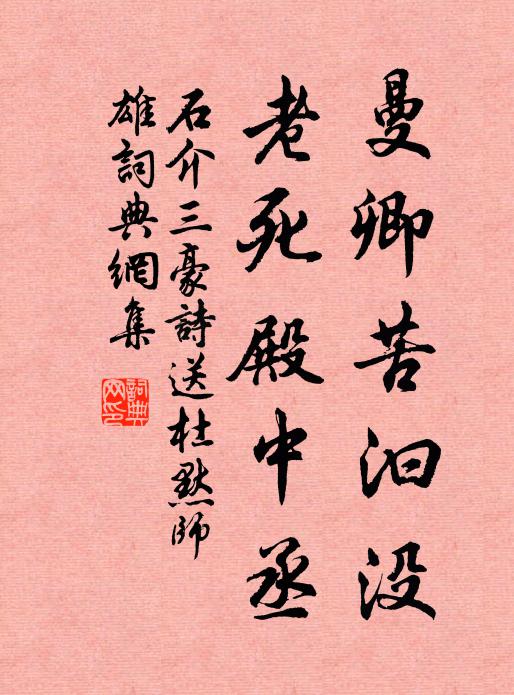 曼卿苦汩没
老死殿中丞
石介三豪詩送杜默師
雄詞典網集
詞典網印